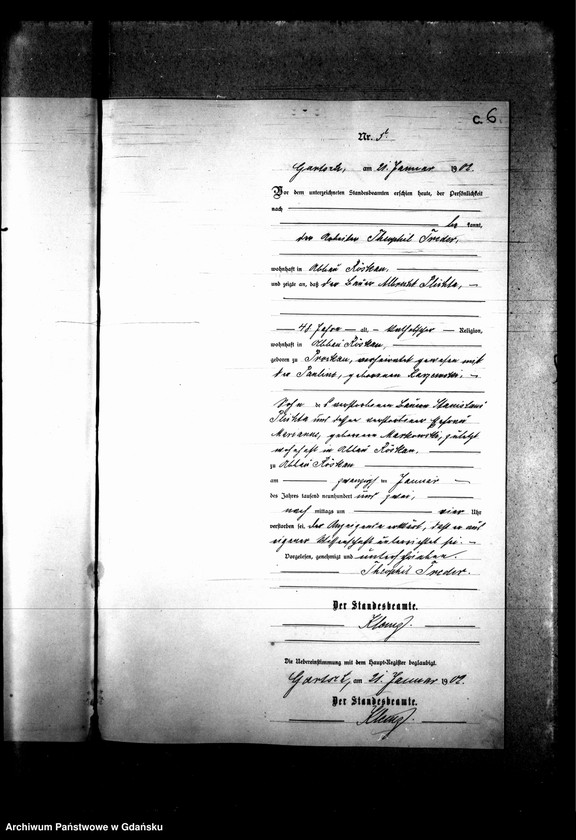 C. 6.
Nr. 5
Gartsch, am 21. Januar 1902.
Vor dem unterzeichneten Standesbeamten erschien heute, der Persönlichkeit
nach
be kannt,
der Arbeiter Theophil Treder,
wohnhaft in Abbau Röskau,
und zeigte an, daß der Bauer Albrecht Plichta,
48 Jahre alt, katholischer Religion,
wohnhaft in Abbau Röskau,
geboren zu Proskau, verheirathet gewesen mit
der Pauline, geborenen
Sohn des verstorbenen Bauern Stanislaus
Plichta und dessen verstorbener Ehefrau
Marianne, geborenen Markowski, zuletzt
wohnhaft in Abbau Röskau,
zu Abbau Röskau
am zwanzigsten Januar
des Jahres tausend neunhundert und zwei,
nach mittags um vier Uhr
verstorben sei. Der Anzeigende erklärt, daß er aus
eigener Wissenschaft unterrichtet sei.
Vorgelesen, genehmigt und unterschrieben.
Theophil Treder.
Der Standesbeamte.
Die Uebereinstimmung mit dem Haupt-Register beglaubigt.
Gartsch, am 21. Januar 1902.
Der Standesbeamte.
Archiwum Państwowe w Gdańsku